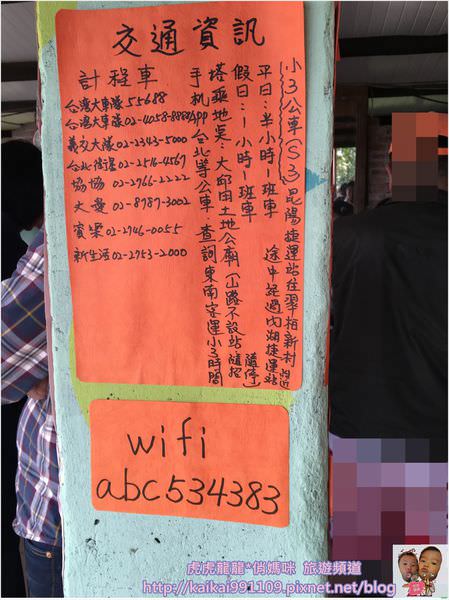 交通資訊
小3公車(S3)昆陽捷運站往翠柏新村
途中經過內湖捷運站
平日:半小時一班車
假日:一小時一班車
塔乘地点:大邱田土地公廟(山路不設站隨招隨停)
手机APP台北等公車 查詞東南客運小3時間
計程車
台灣大車隊 55688
台灣大車隊 02-4058-8888
義交大隊 02-2343-5000
台北衛星 02-2546-4567
協協 02-2766-2222
大愛 02-8787-3002
賓樂 02-2746-0055
新生活 02-2753-2000
wifi
abc534383
虎虎龍龍*俏媽咪 旅遊頻道
http://kaikai991109.pixnet.net/blog